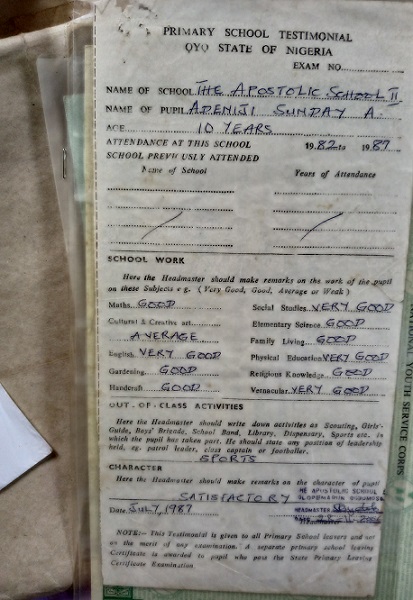 PRIMARY SCHOOL TESTIMONIAL
OYO STATE OF NIGERIA
EXAM NO
NAME OF SCHOOL THE APOSTOLIC SCHOOL II
NAME OF PUPIL ADENIJI SUNDAY A.
AGE 10 YEARS
ATTENDANCE AT THIS SCHOOL 1982 to 1987
SCHOOL PREVIOUSLY ATTENDED
Name of School Years of Attendance
SCHOOL WORK
Here the Headmaster should make remarks on the work of the pupil
on these Subjects e.g. (Very Good, Good, Average or Weak)
Maths GOOD Social Studies VERY GOOD
Cultural & Creative art Elementary Science GOOD
AVERAGE Family Living GOOD
English VERY GOOD Physical Education VERY GOOD
Gardening GOOD Religious Knowledge GOOD
Handcraft GOOD Vernacular VERY GOOD
OUT-OF-CLASS ACTIVITIES
Here the Headmaster should write down activities as Scouting, Girls'
Guide, Boys' Brigade, School Band, Library, Dispensary, Sports etc. in
which the pupil has taken part. He should state any position of leadership
held, eg. patrol leader, class captain or footballer.
SPORTS
CHARACTER
Here the Headmaster should make remarks on the character of pupil
SATISFACTORY
THE APOSTOLIC SCHOOL
Date JULY, 1987 HEADMASTER
NOTE:- This Testimonial is given to all Primary School leavers and not
on the merit of any examination. A separate primary school leaving
Certificate is awarded to pupil who pass the State Primary Leaving
Certificate Examination
YOUTH SERVICE CORPS